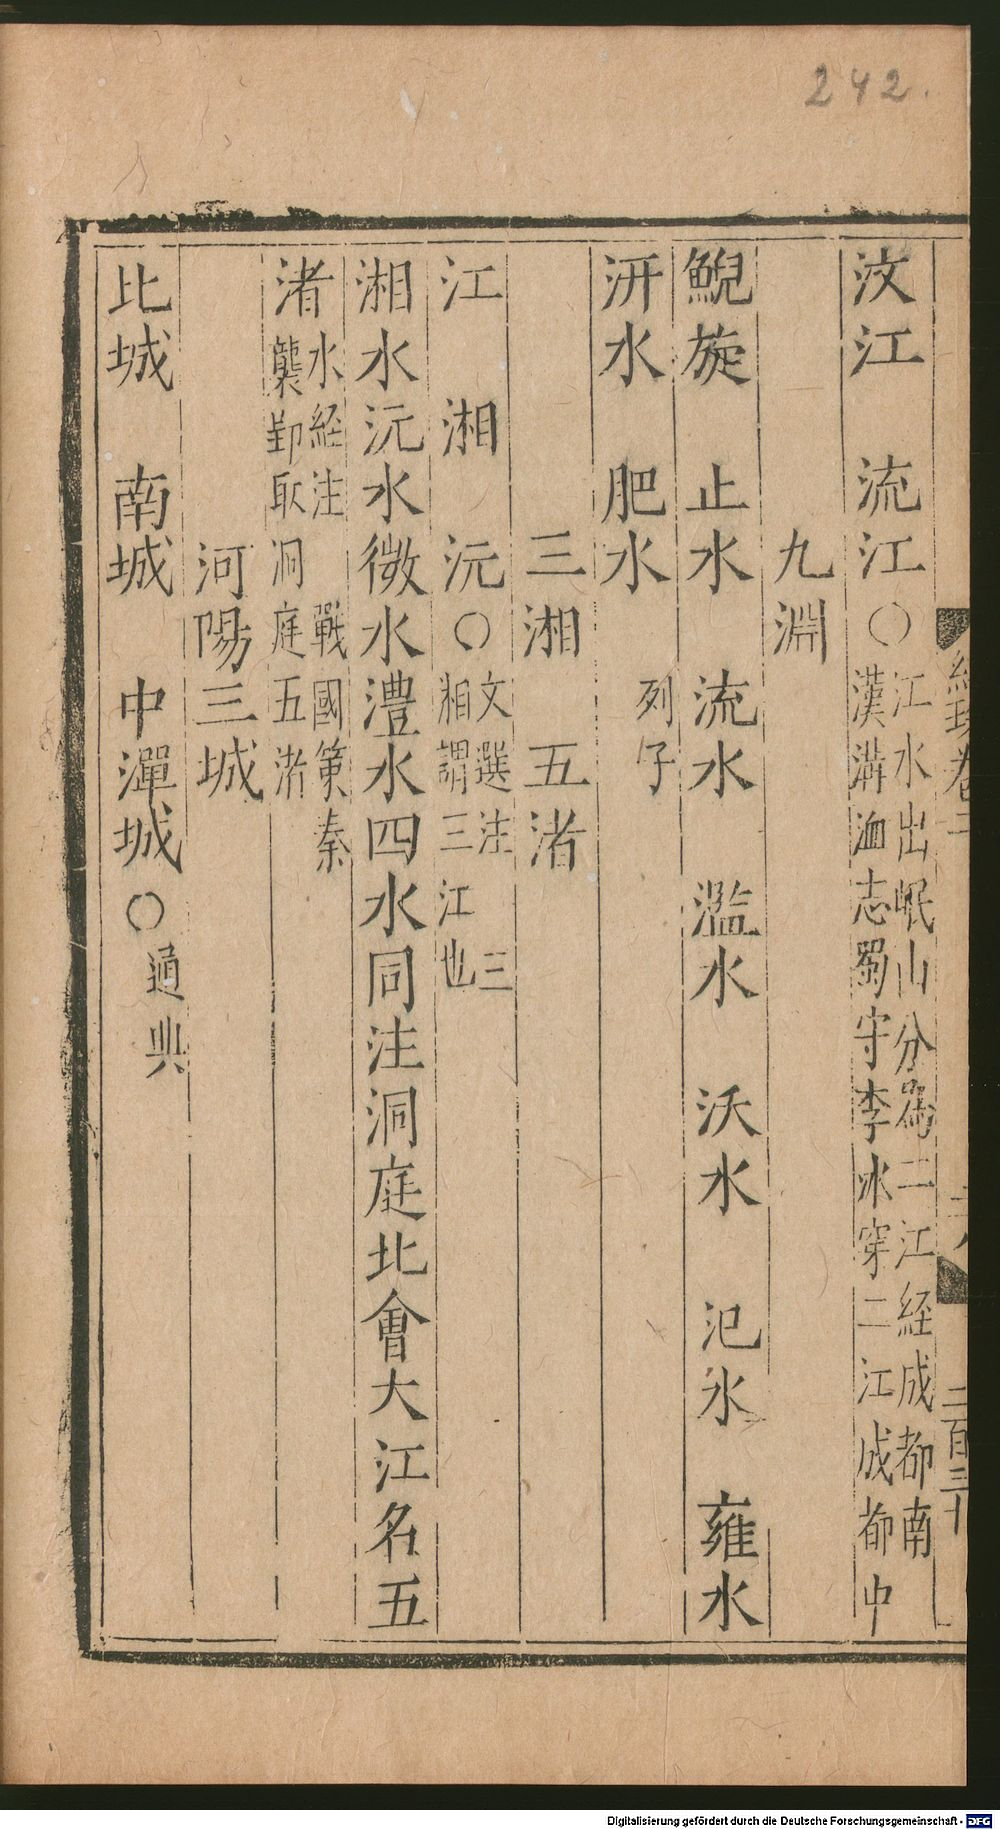 242.
汶江　流江○江水出岷山分爲二江経成都南
漢溝洫志蜀守李冰穿二江成都中
九淵
鯢旋　止水　流水　濫水　沃水　氿水　雍水
汧水　肥水　列子
三湘　五渚
江　湘　沅○文選注三
湘謂三江也
湘水沅水微水澧水四水同注洞庭北會大江名五
渚水経注　戰國策秦
襲郢取洞庭五渚
河陽三城
北城　南城　中潬城○通典
二百三十
Digitalisierung gefördert durch die Deutsche Forschungsgemeinschaft - DFG